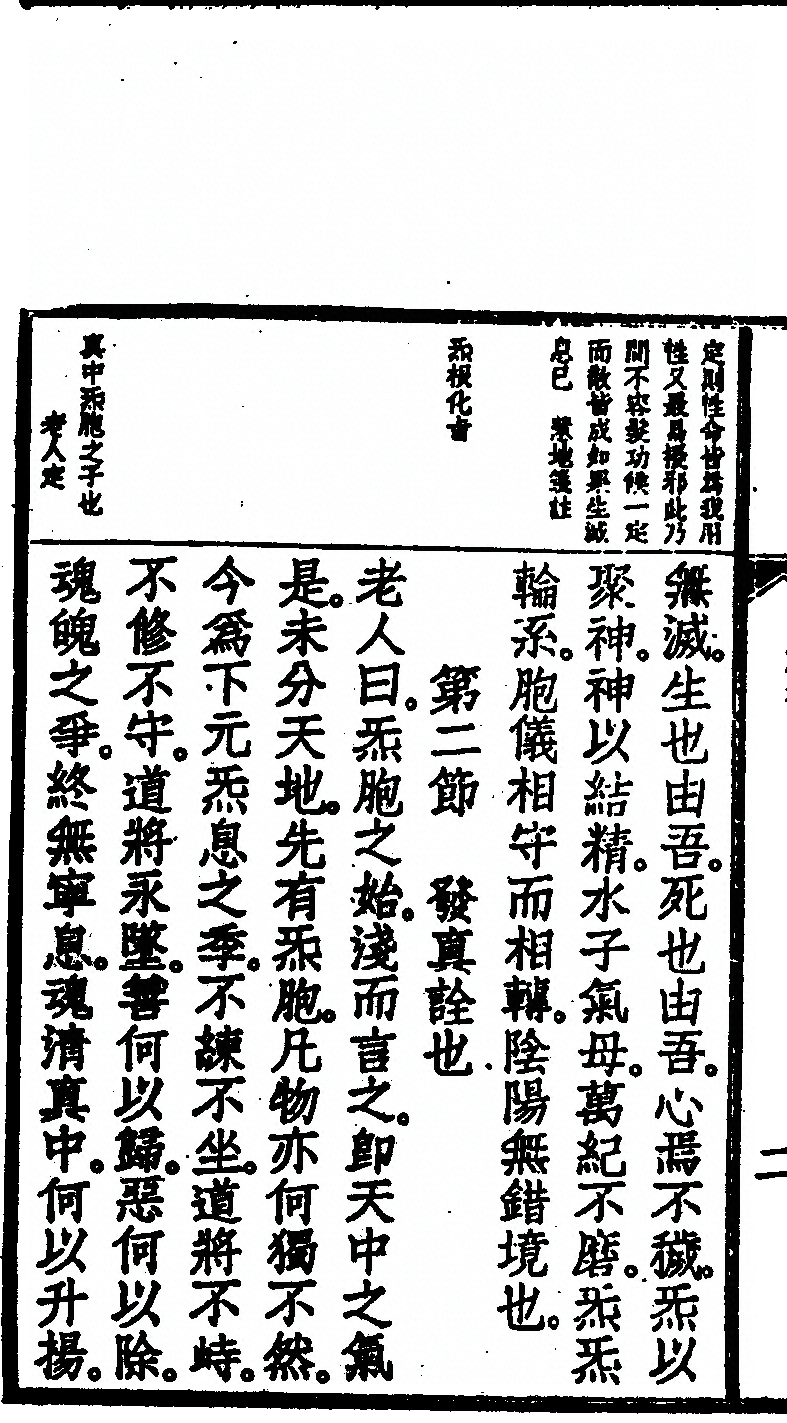 定則性命皆為我用
性又最易擾邪此乃
間不容髮功候一定
而散皆成如果生滅
息已　慧地箋註
炁根化者
真中炁胞之子也
老人定
無滅。生也由吾。死也由吾。心焉不穢。炁以
聚神。神以結精。水子氣母。萬紀不磨。炁炁
輪系。胞儀相守而相轉。陰陽無錯境也。
第二節　發真詮也
老人曰。炁胞之始。淺而言之。卽天中之氣
是。未分天地。先有炁胞。凡物亦何獨不然。
今爲下元炁息之季。不諫不坐。道將不峙。
不修不守。道將永墜。善何以歸。惡何以除。
魂魄之爭。終無寧息。魂清真中。何以升揚。
二